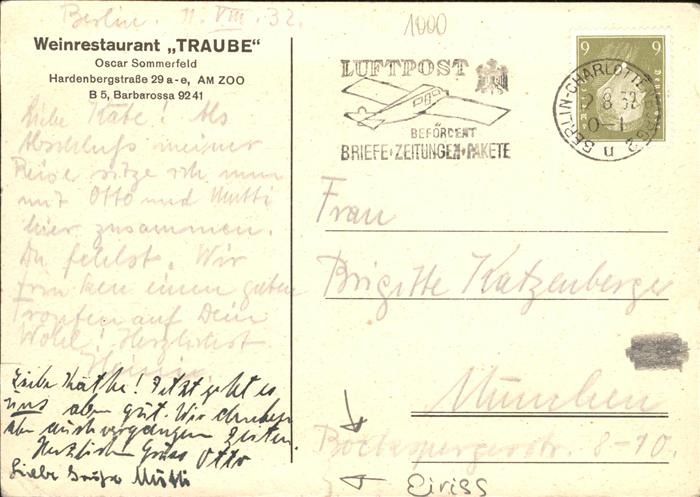 Berlin. 11. VIII. 32.
1000
Weinrestaurant „TRAUBE“
Oscar Sommerfeld
Hardenbergstraße 29 a-e, AM ZOO
B 5, Barbarossa 9241
LUFTPOST
BEFÖRDERT
BRIEFE·ZEITUNGEN·PAKETE
9 9
BERLIN-CHARLOTTENBURG 2
8.32
u
Liebe Käte! Als
Abschluß meiner
Reise sitze ich nun
mit Otto und Mutti
hier zusammen.
Du fehlst. Wir
trinken einen guten
Tropfen auf Dein
Wohl! Herzlichst
Liebe Käthe! Jetzt geht es
uns aber gut. Wir
aber auch vergangen Zeiten.
Herzlichen Gruss Otto
Liebe Grüße Mutti
Frau
Brigitte Katzenberger
München
8-10.